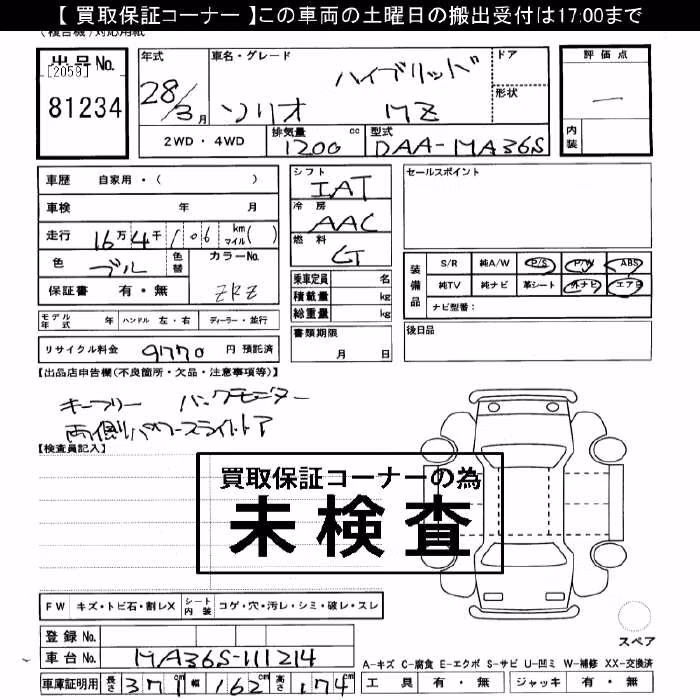 【 買取保証コーナー 】この車両の土曜日の搬出受付は17:00まで
(複合機)対応用紙
出品No.
[2059]
81234
年式
28/3月
車名・グレード
ハイブリッド
ソリオ MZ
ドア
形状
評価点
―
内装
2WD・4WD
排気量
1200 cc
型式
DAA-MA36S
車歴 自家用・( )
車検 年 月
走行 16万4千106 km マイル( )
色 ブル
色替
カラーNo.
ZRZ
保証書 有・無
シフト
IAT
冷房
AAC
燃料
G
乗車定員 名
積載量 kg
総重量 kg
書類期限
月 日
セールスポイント
装備品
S/R 純A/W P/S P/W ABS
純TV 純ナビ 革シート 外ナビ エアB
ナビ型番:
後日品
モデル年式 年 ハンドル 左・右 ディーラー・並行
リサイクル料金 9770 円 預託済
【出品店申告欄(不良箇所・欠品・注意事項等)】
キーフリー バックモニター
両側パワースライドドア
【検査員記入】
買取保証コーナーの為
未検査
FW キズ・トビ石・割レX シート内装 コゲ・穴・汚レ・シミ・破レ・スレ
登録No.
車台No. MA36S-111214
車庫証明用 長さ 371cm 幅 162cm 高さ 174cm
スペア
A-キズ C-腐食 E-エクボ S-サビ U-凹ミ W-補修 XX-交換済
工具 有・無 ジャッキ 有・無